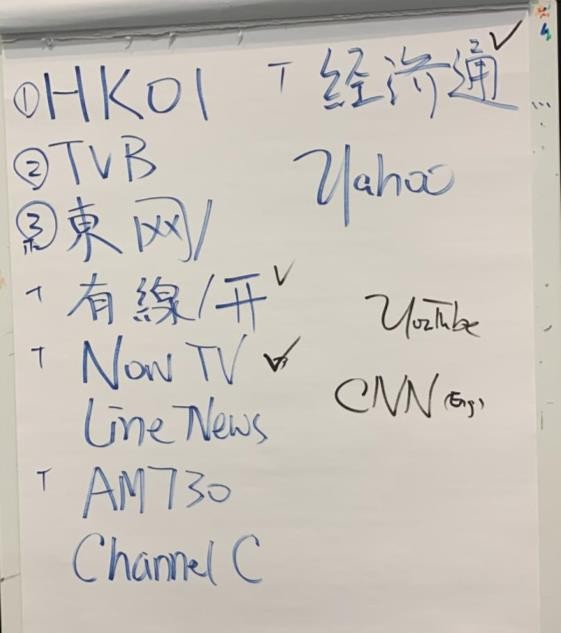 ① HK01
② TVB
③ 東网/
T 有線/开 ✓
T Now TV ✓
Line News
T AM730
Channel C
T 经济通 ✓
Yahoo
YouTube
CNN (Eng)